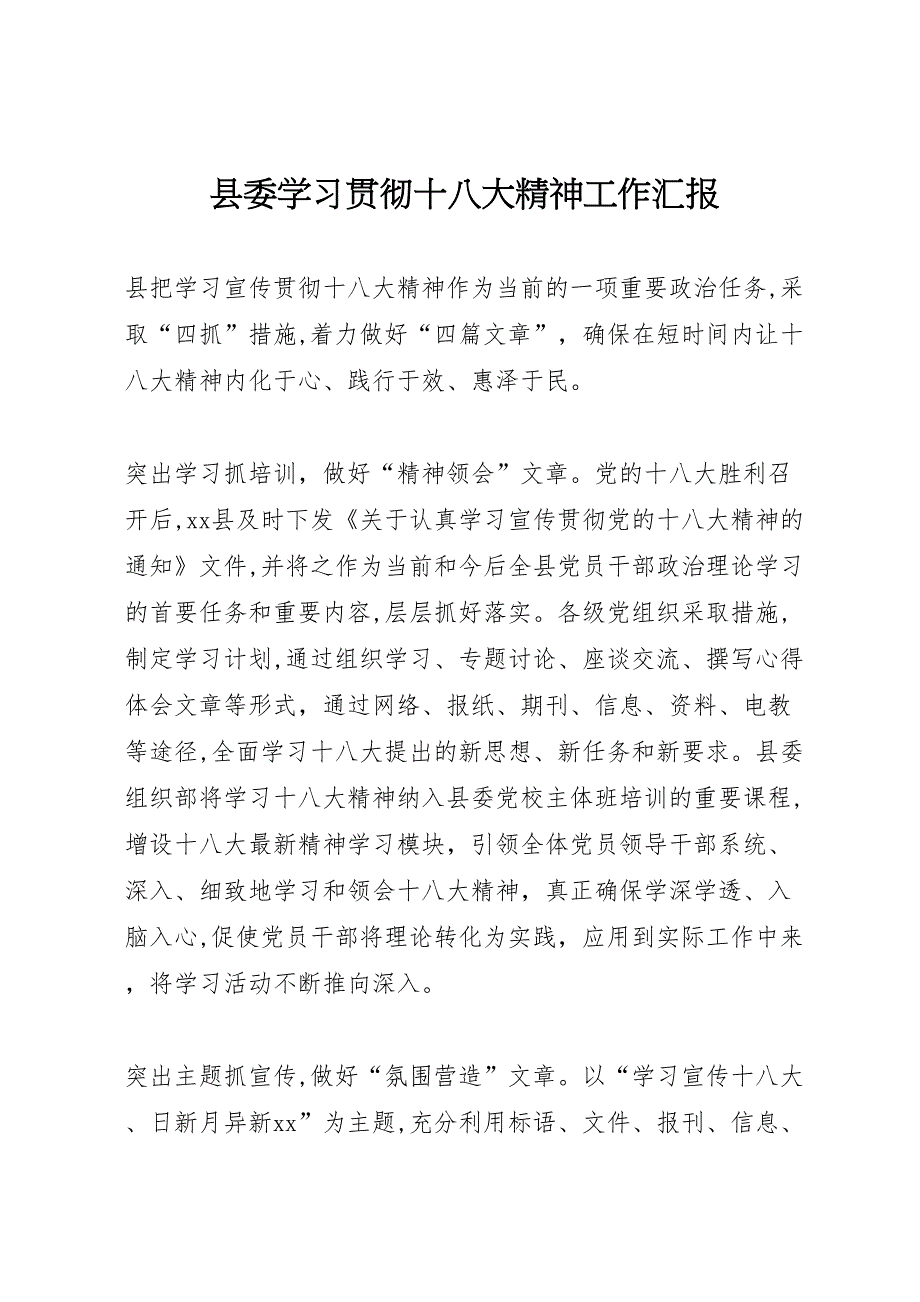 县委学习贯彻十八大精神工作汇报
县把学习宣传贯彻十八大精神作为当前的一项重要政治任务,采
取“四抓”措施,着力做好“四篇文章”，确保在短时间内让十
八大精神内化于心、践行于效、惠泽于民。
突出学习抓培训，做好“精神领会”文章。党的十八大胜利召
开后,xx县及时下发《关于认真学习宣传贯彻党的十八大精神的
通知》文件,并将之作为当前和今后全县党员干部政治理论学习
的首要任务和重要内容,层层抓好落实。各级党组织采取措施,
制定学习计划,通过组织学习、专题讨论、座谈交流、撰写心得
体会文章等形式，通过网络、报纸、期刊、信息、资料、电教
等途径,全面学习十八大提出的新思想、新任务和新要求。县委
组织部将学习十八大精神纳入县委党校主体班培训的重要课程,
增设十八大最新精神学习模块，引领全体党员领导干部系统、
深入、细致地学习和领会十八大精神，真正确保学深学透、入
脑入心,促使党员干部将理论转化为实践，应用到实际工作中来
，将学习活动不断推向深入。
突出主题抓宣传,做好“氛围营造”文章。以“学习宣传十八大
、日新月异新xx”为主题,充分利用标语、文件、报刊、信息、